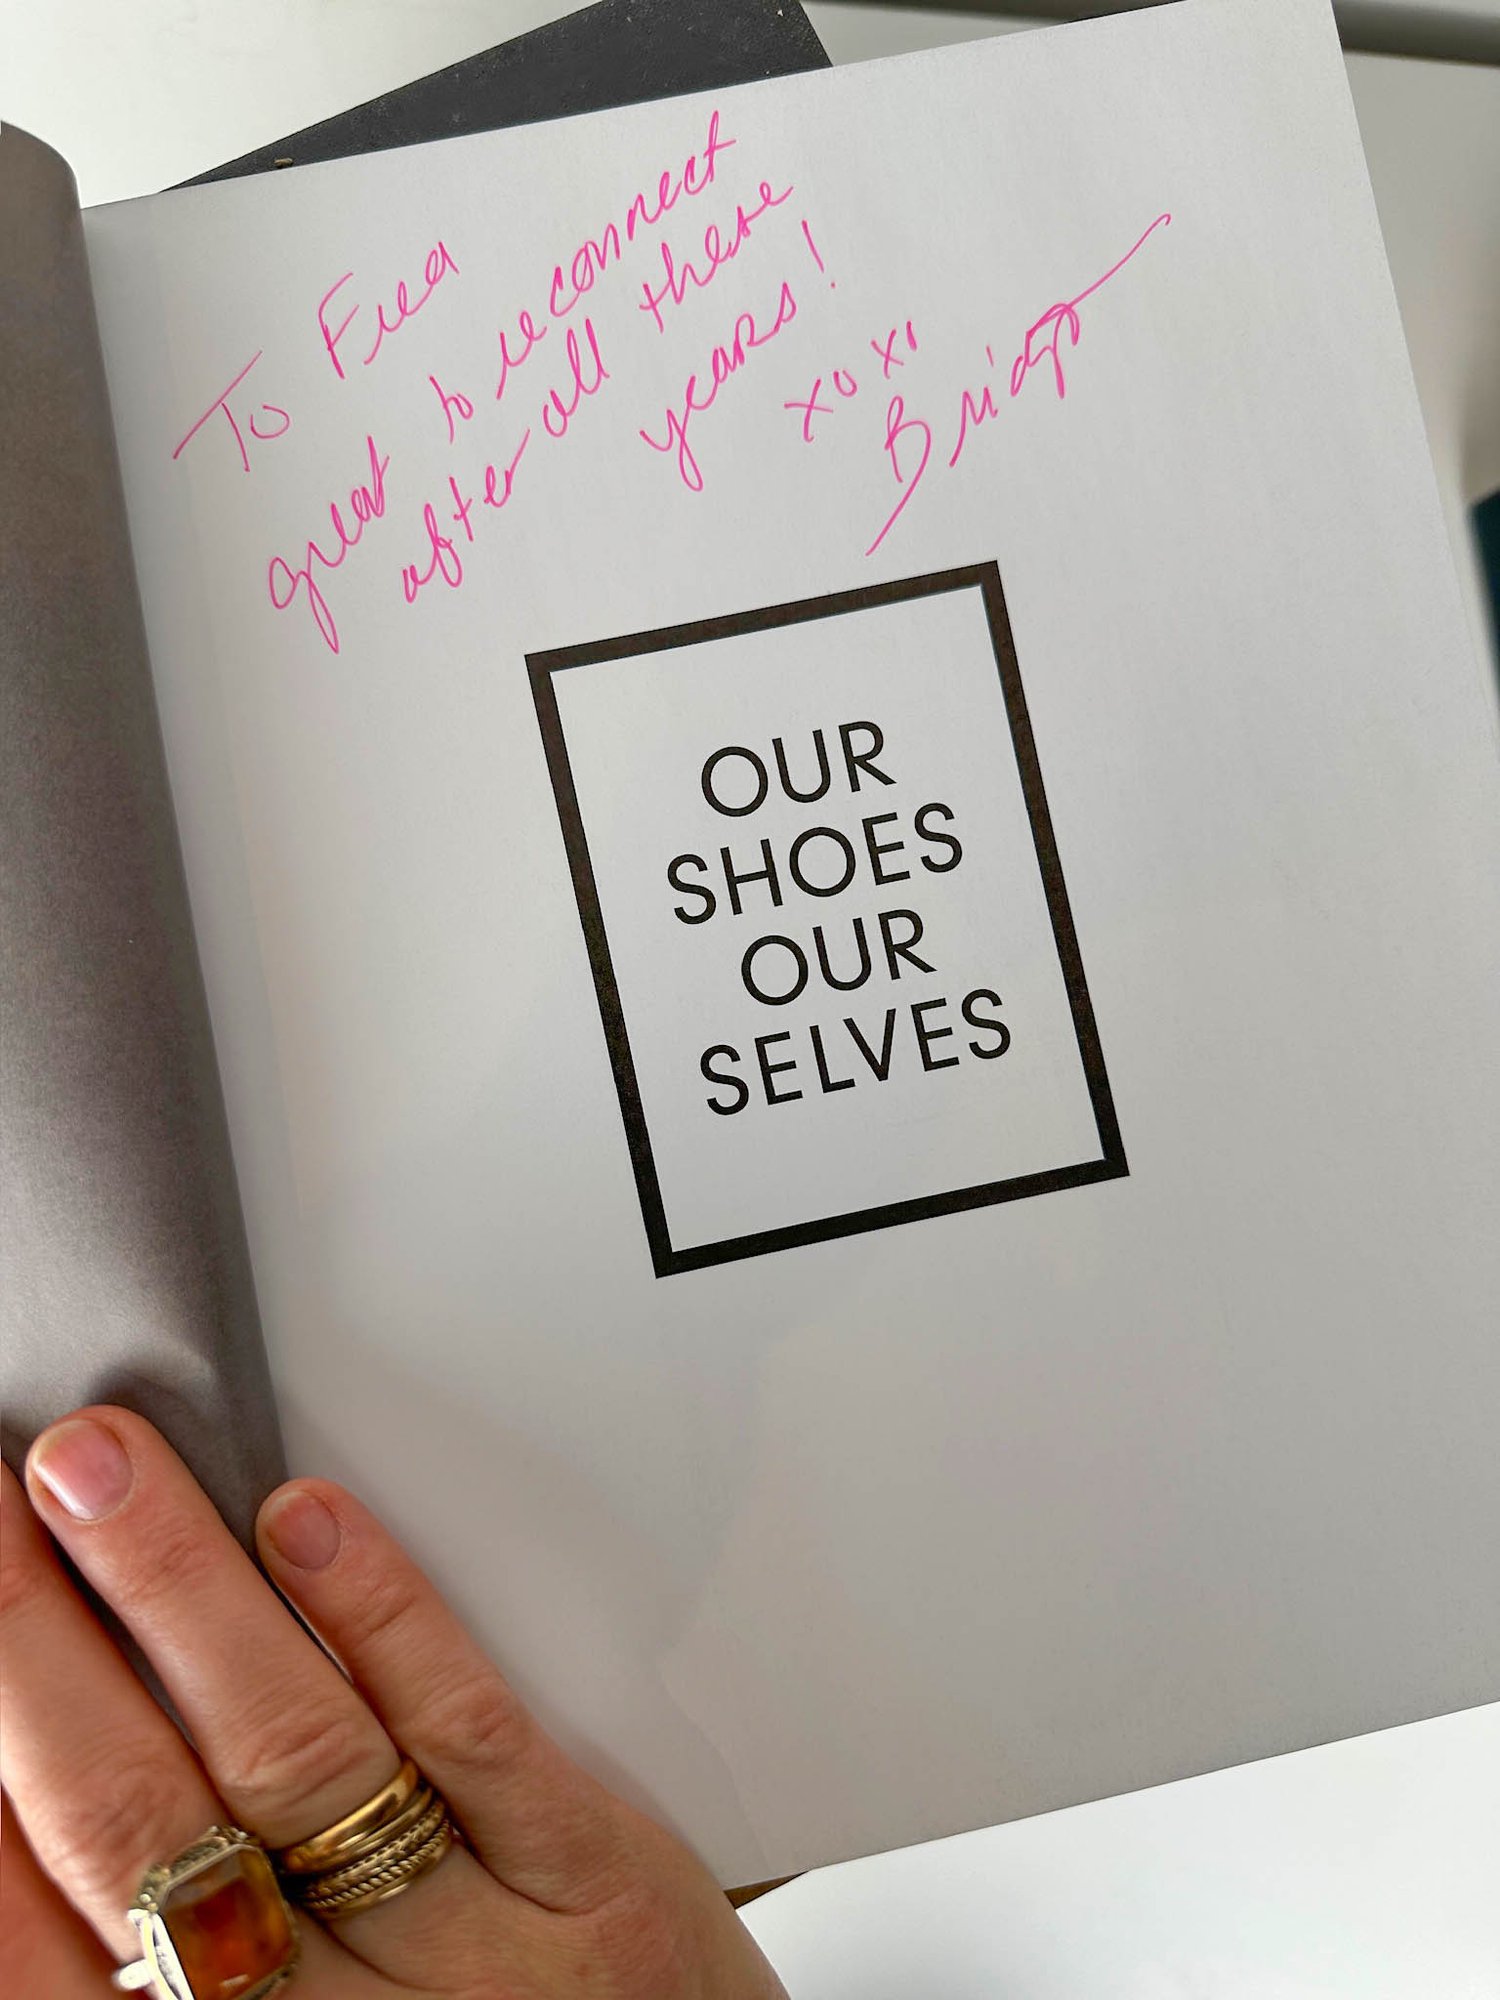 To Eea
great to reconnect
after all these
years!
xoxo
Bridget
OUR
SHOES
OUR
SELVES